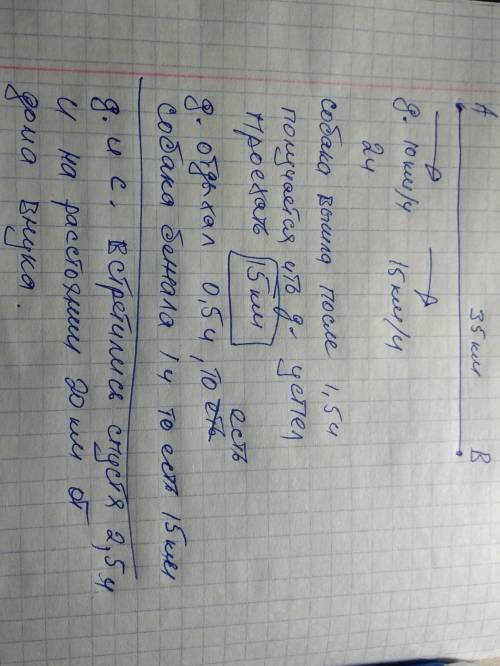 35 км
A B
д. 10 км/ч 15 км/ч
2ч
собака вышла после 1,5ч
получается что д. успел
проехать 15 км
д. отдыхал 0,5ч, то есть
собака бежала 1ч то есть 15 км
д. и с. встретились спустя 2,5ч
и на расстоянии 20 км от
дома внука.